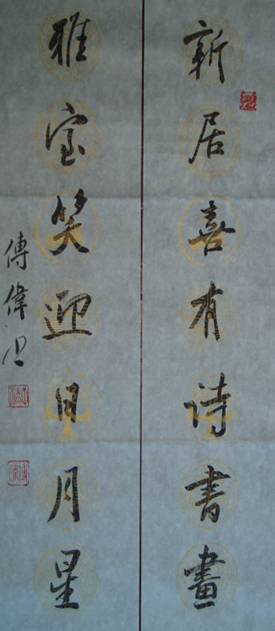 新居喜有诗書畫
雅室笑迎日月星
傅偉